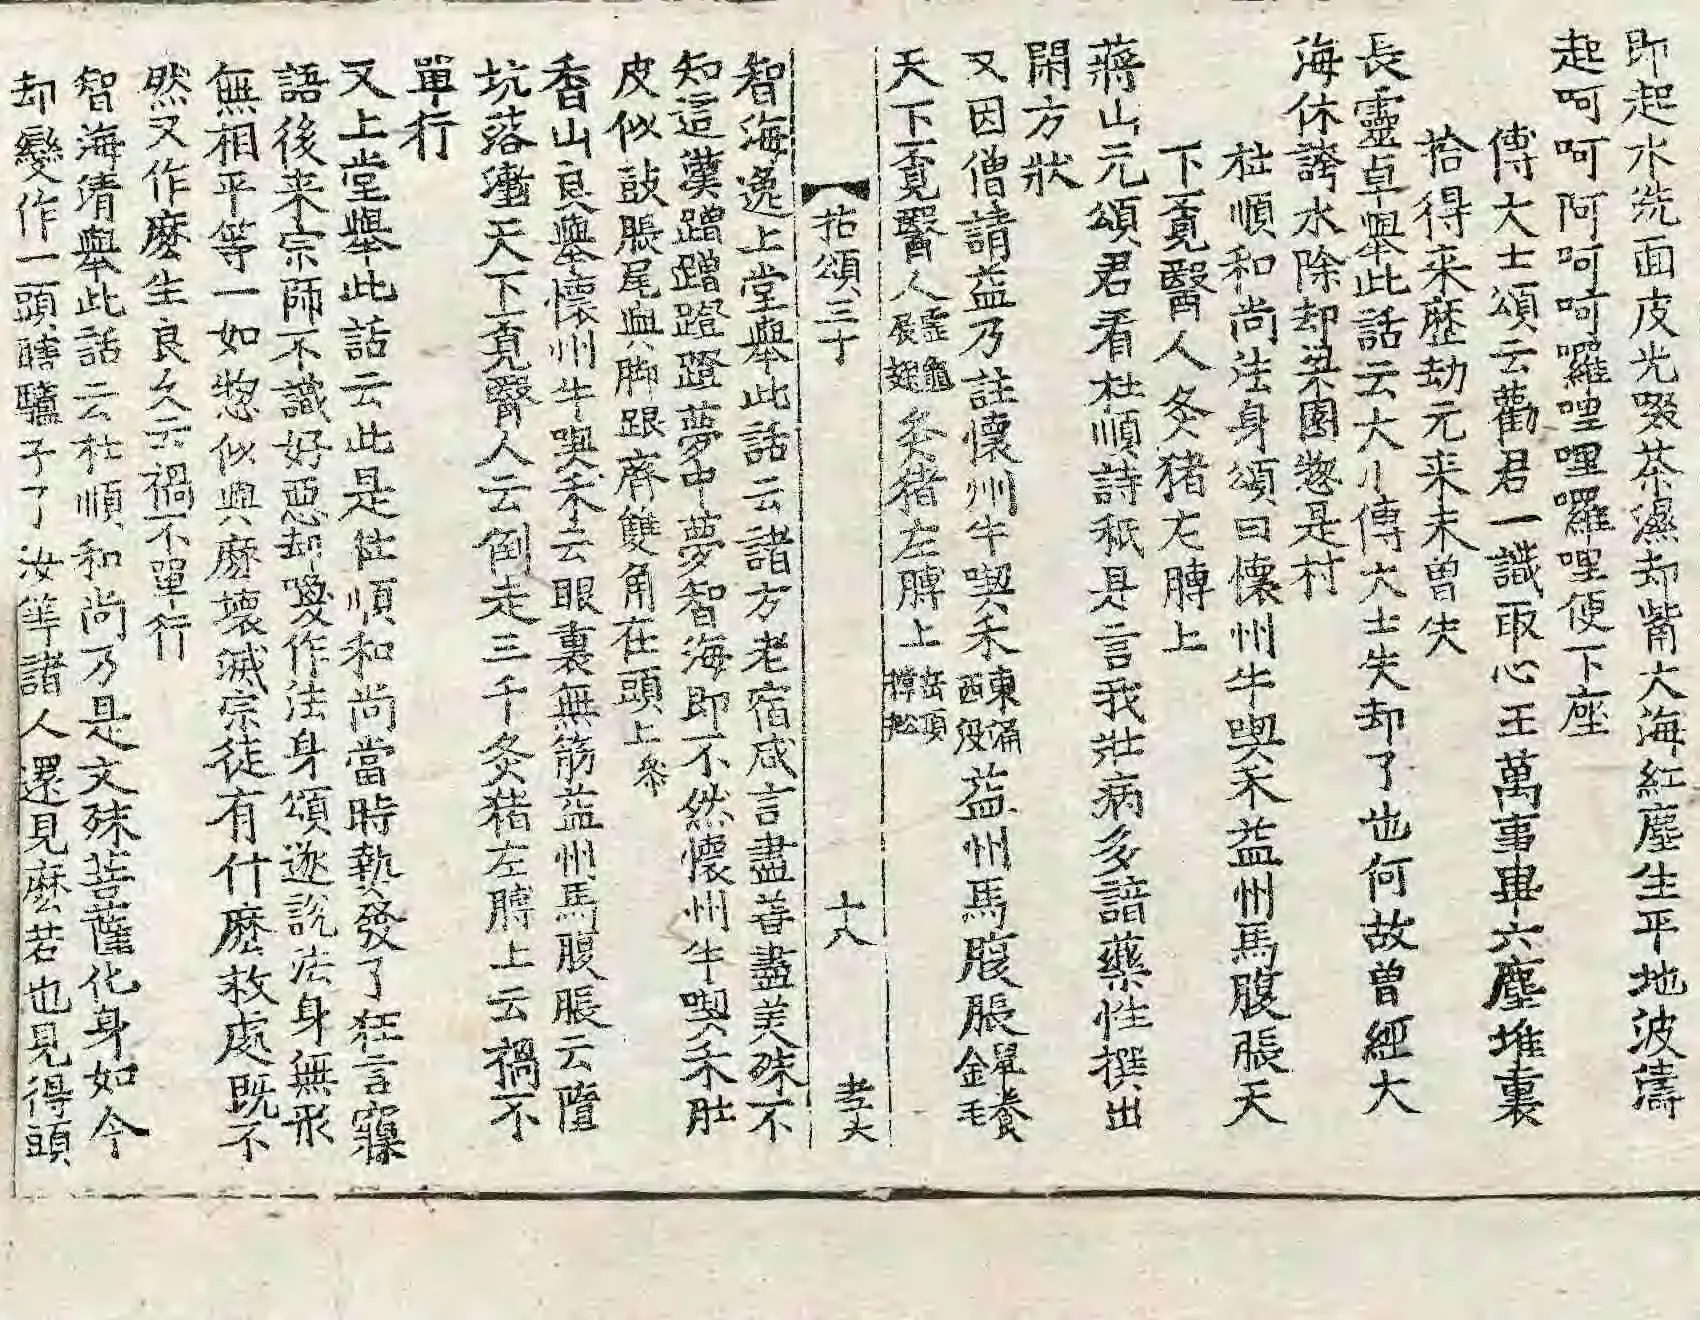 即起水洗面皮光啜茶濕却觜大海紅塵生平地波濤
起呵呵呵阿呵呵囉哩哩囉哩便下座
傅大士頌云勸君一識取心王萬事與六塵堆裏
拾得来歷劫元来未曾失
長靈卓舉此話云大小傅大士失却了也何故曽經大
海休誇水除却梁園惣是村
杜順和尚法身頌曰懷州牛喫禾益州馬腹脹天
下覔醫人灸猪左膊上
蔣山元頌君看杜順詩秖是言我壯病多諳藥性撰出
閑方狀
又因僧請益乃註懷州牛喫禾東涌西没益州馬腹脹金毛
天下覔醫人灸猪左膊上
拈頌三十 十八
智海逸上堂舉此話云諸方老宿咸言盡善盡美殊不
知這漢蹭蹭蹬蹬夢中夢智海即不然懷州牛喫禾肚
皮似鼓脹尾與脚跟齊雙角在頭上叅
香山良舉懷州牛喫禾云眼裏無筋益州馬腹脹云墮
坑落壍天下覔醫人云倒走三千灸猪左膊上云禍不
單行
又上堂舉此話云此是杜順和尚當時熱發了狂言寱
語後来宗師不識好惡却喚作法身頌遂說法身無形
無相平等一如惣似與麽壞滅宗徒有什麽救處既不
然又作麽生良久云禍不單行
智海清舉此話云杜順和尚乃是文殊菩薩化身如今
却變作一頭瞎驢子了汝等諸人還見麽若也見得頭